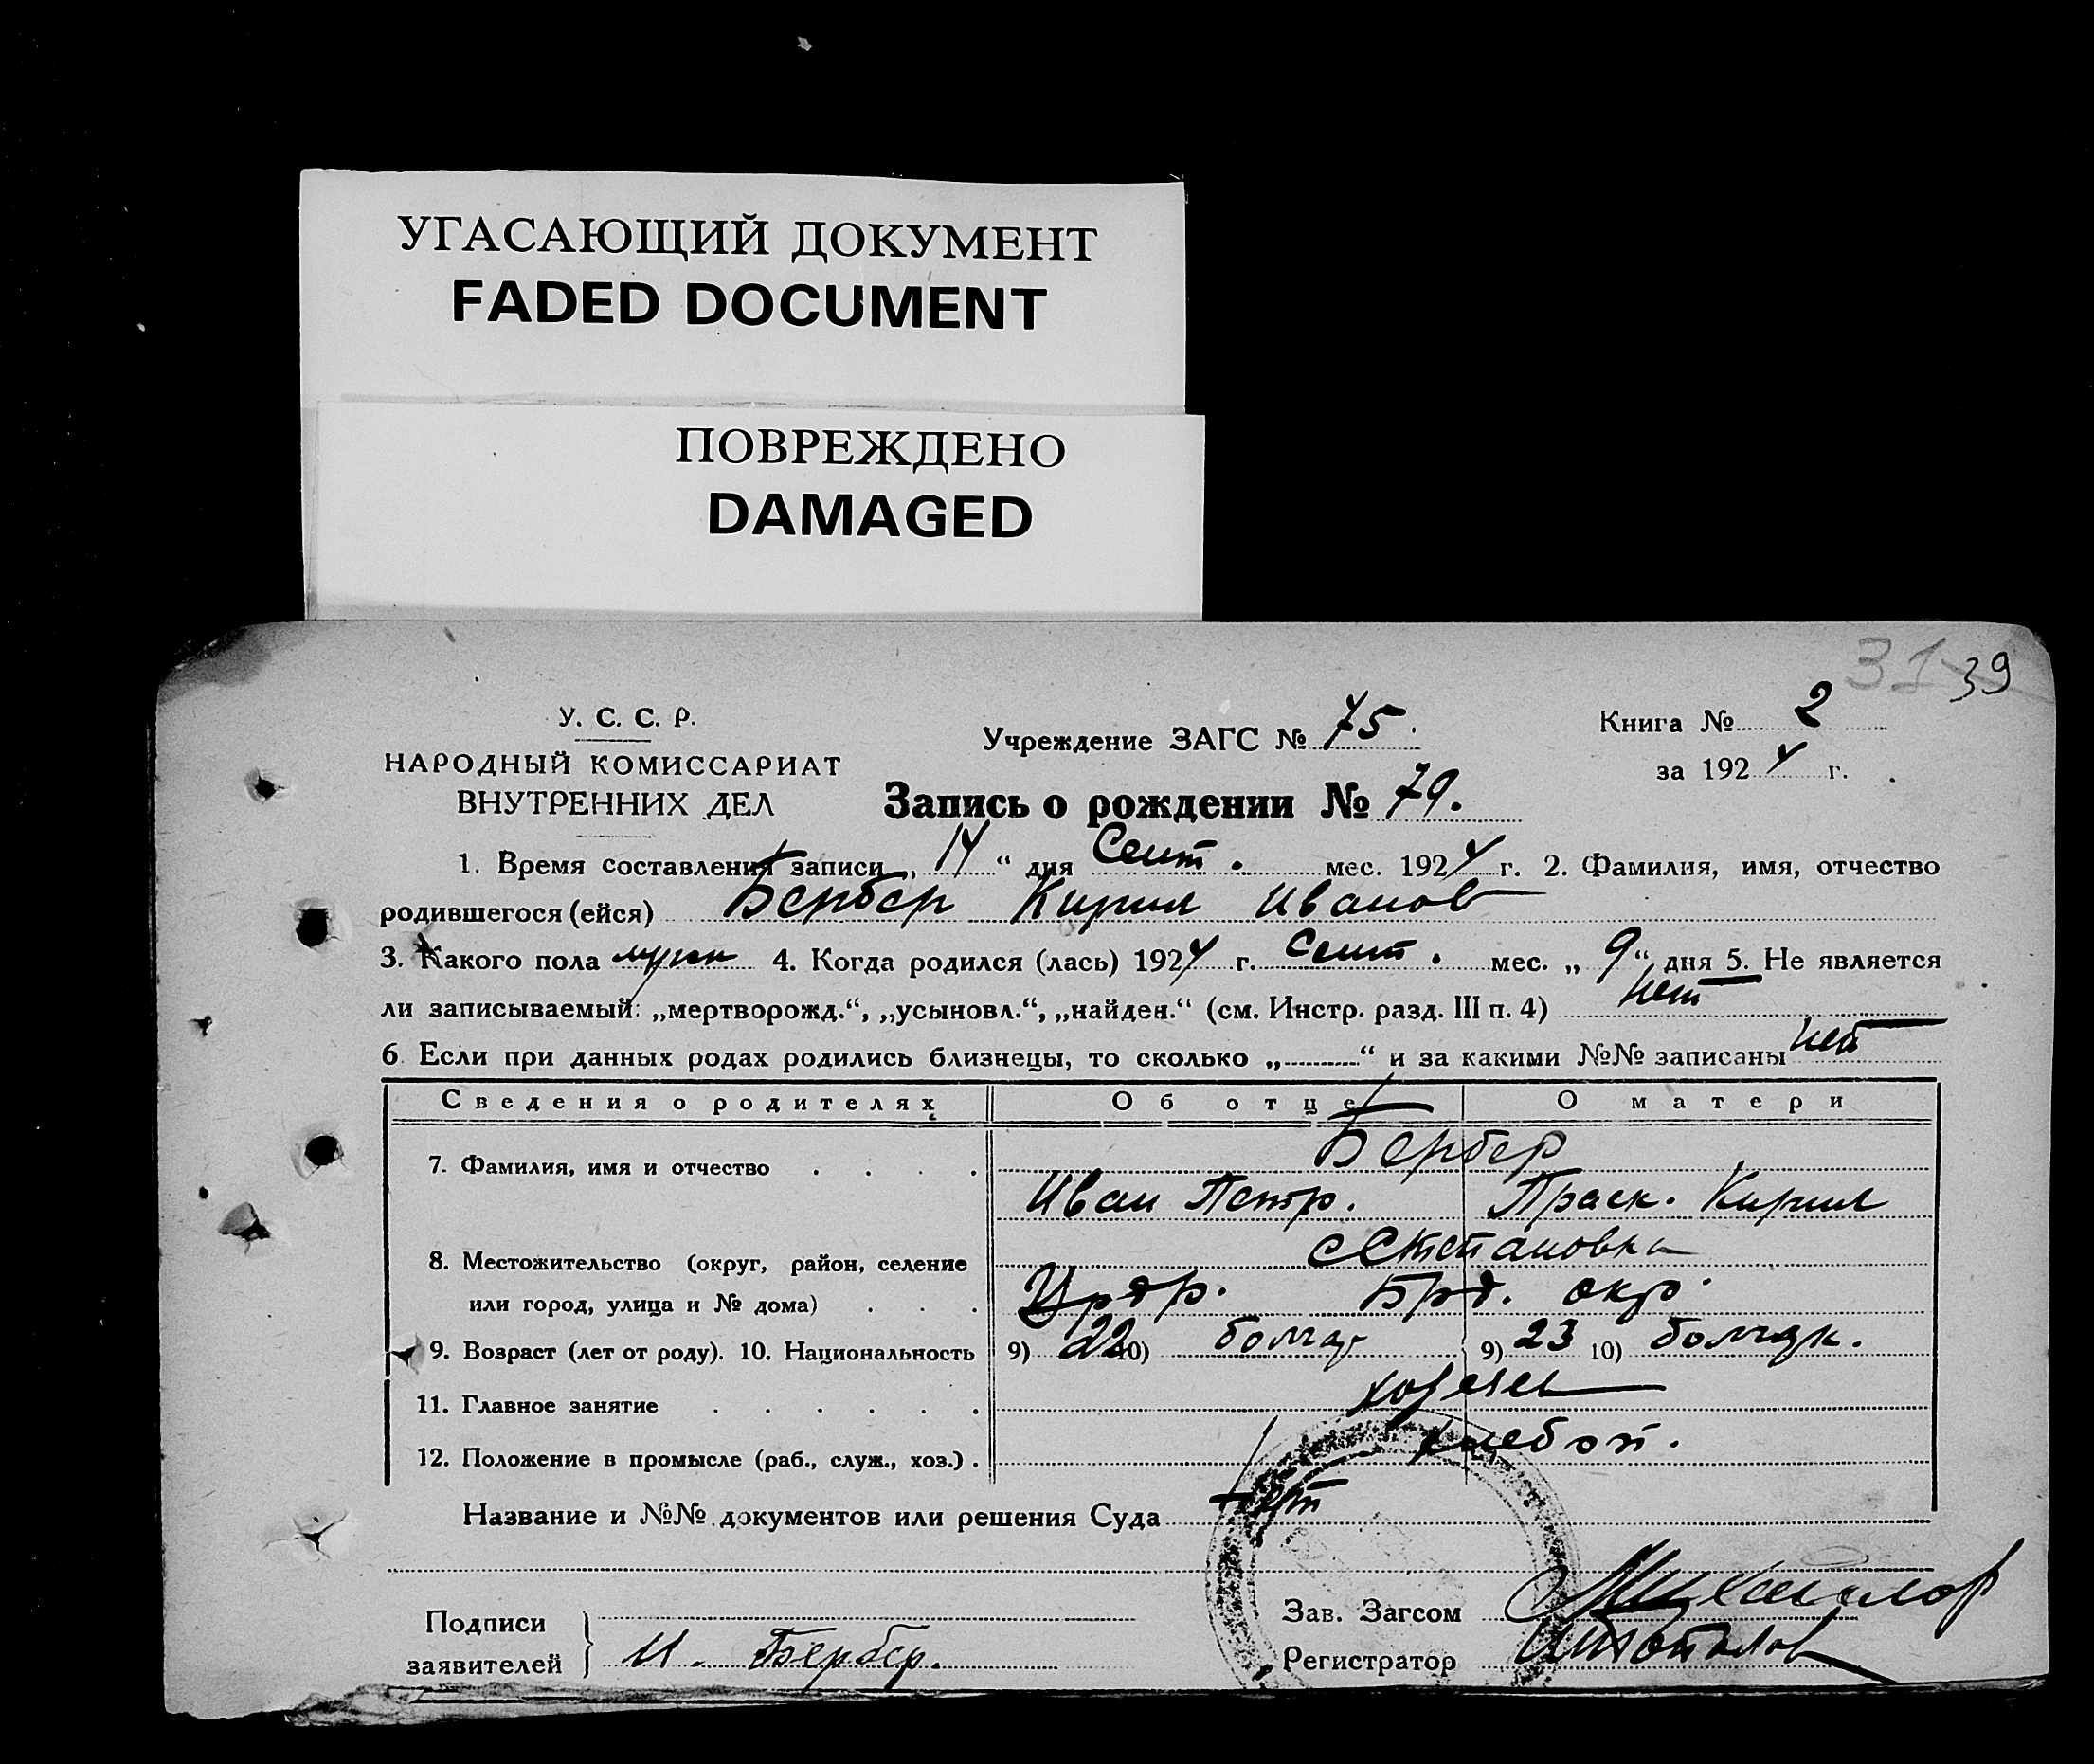 УГАСАЮЩИЙ ДОКУМЕНТ
FADED DOCUMENT
ПОВРЕЖДЕНО
DAMAGED
31 39
У. С. С. Р.
НАРОДНЫЙ КОМИССАРИАТ
ВНУТРЕННИХ ДЕЛ
Учреждение ЗАГС № 75.
Книга № 2
за 1924 г.
Запись о рождении № 79.
1. Время составления записи „14“ дня Сент. мес. 1924 г. 2. Фамилия, имя, отчество
родившегося (ейся) Бербер Кирил Иванов
3. Какого пола муж 4. Когда родился (лась) 1924 г. Сент. мес. „9“ дня 5. Не является
ли записываемый: „мертворожд.“, „усыновл.“, „найден.“ (см. Инстр. разд. III п. 4) нет
6. Если при данных родах родились близнецы, то сколько „ “ и за какими №№ записаны нет
Сведения о родителях Об отце О матери
7. Фамилия, имя и отчество Бербер
Иван Петр. Праск. Кирил
8. Местожительство (округ, район, селение Степановка
или город, улица и № дома) Брд. окр.
9. Возраст (лет от роду). 10. Национальность 9) 22 10) болгар 9) 23 10) болгарк.
11. Главное занятие
12. Положение в промысле (раб., служ., хоз.) хлебоп.
Название и №№ документов или решения Суда нет
Подписи
заявителей И. Бербер.
Зав. Загсом Михайлов
Регистратор